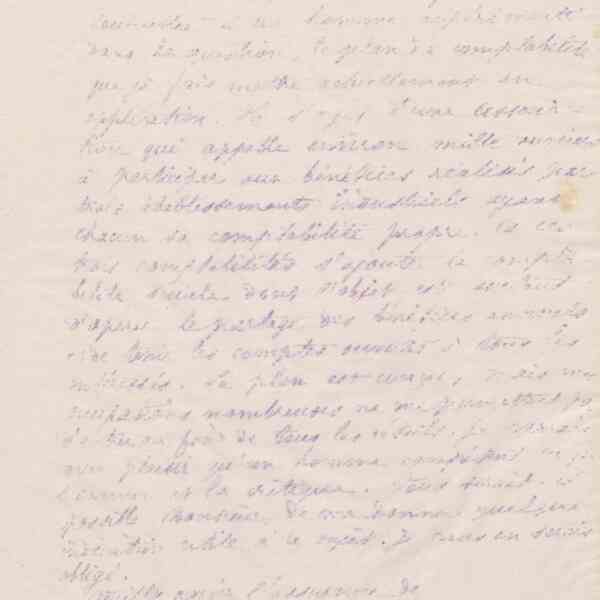 soumettre à un homme expérimenté
dans la question, le plan de comptabilité
que je fais mettre actuellement en
application. Il s'agit d'une associa-
tion qui appelle environ mille ouvriers
à participer aux bénéfices réalisés par
trois établissements industriels ayant
chacun sa comptabilité propre. à ces
trois comptabilités s'ajoute la compta
bilité sociale dont l'objet est surtout
d'opérer le partage des bénéfices annuels
de tenir les comptes ouverts à tous les
intéressés. Le plan est conçu, mais mes
occupations nombreuses ne me permettent pas
d'être au fait de tous les détails. Je verrais
avec plaisir qu'un homme compétent
l'examine et la critique. Vous serait-il
possible Monsieur de me donner quelque
indication utile à ce sujet. Je vous en serais
obligé.
Veuillez agréer l'assurance de